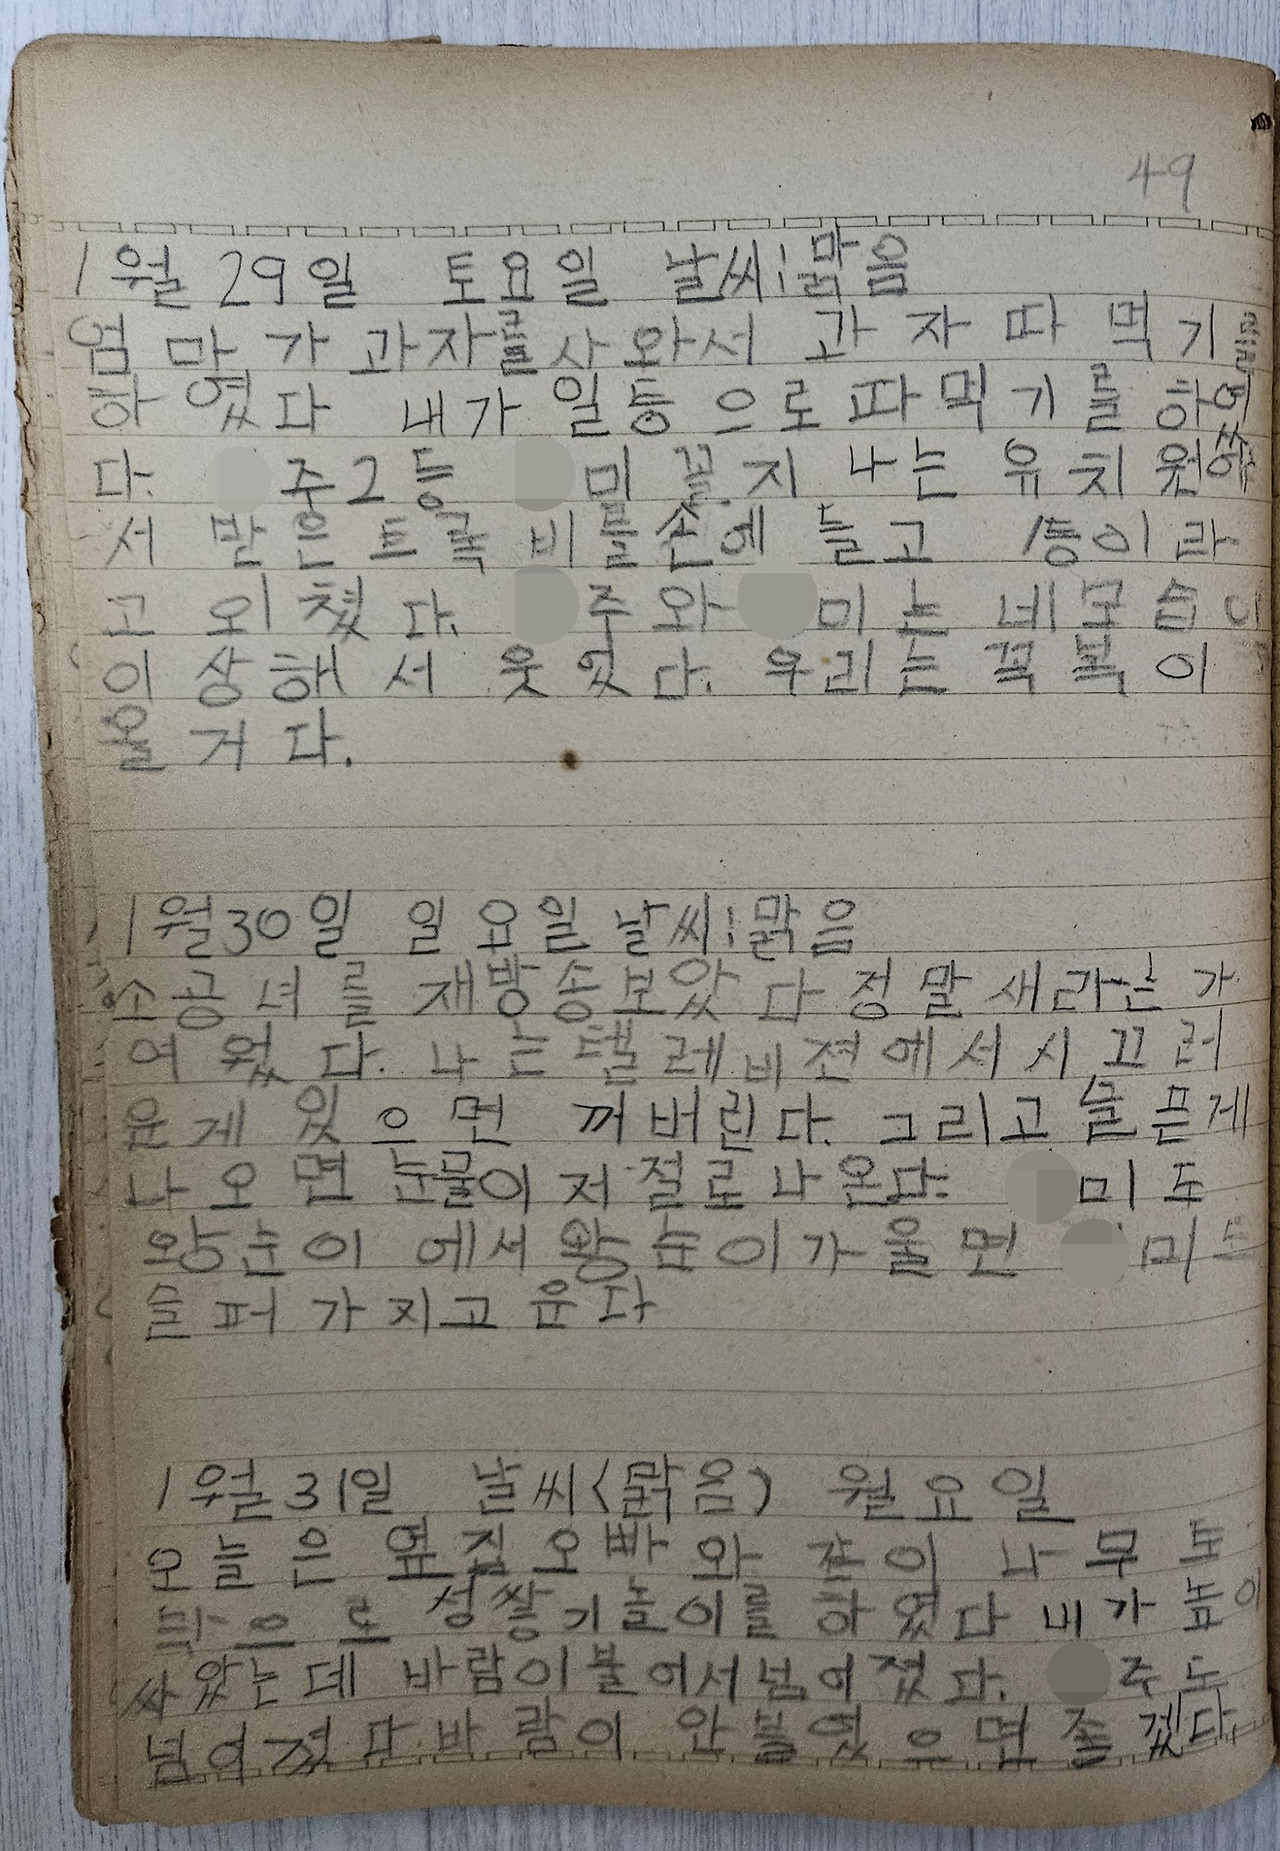 49
1월 29일 토요일 날씨:맑음
엄마가 과자를 사와서 과자 따먹기를
하였다 내가 일등으로 따먹기를 하였
다. 주2등 미 꼴지 나는 유치원에
서 받은 트롵비를 손에 들고 1등이라
고 외쳤다. 주와 미는 내 모습이
이상해서 웃었다. 우리는 꼭 복이
올거다.
1월30일 일요일 날씨:맑음
소공녀를 재방송보았다 정말 새라는 가
여웠다. 나는 텔레비젼에서 시끄러
운게 있으면 꺼버린다. 그리고 슬픈게
나오면 눈물이 저절로 나온다. 미도
왕순이에서 왕순이가 울면 미도
슬퍼가지고 운다
1월31일 날씨(맑음) 월요일
오늘은 옆집오빠와 같이 나무토
막으로 성쌓기놀이를 하였다 내가 높이
싸았는데 바람이불어서넘어졌다. 주도
넘어졌다 바람이 안불였으면 좋겠다